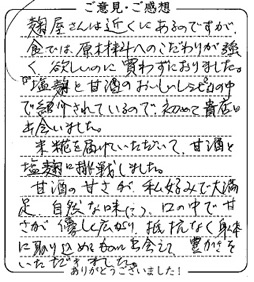 ご意見・ご感想
麹屋さんは近くにあるのですが、
食では、原材料へのこだわりが強
く欲しいのに買わずにおりました。
"塩麹と甘酒のおいしいレシピ"の中
で紹介されているので、初めて貴店に
出会いました。
米糀を届けていただいて、甘酒と
塩麹に挑戦しました。
甘酒の甘さが、私好みで大満
足 自然な味に、口の中で甘
さが優しく広がり 抵抗なく身体
に取り込めるものに出会えて 豊かさを
いただきました。
ありがとうございました！